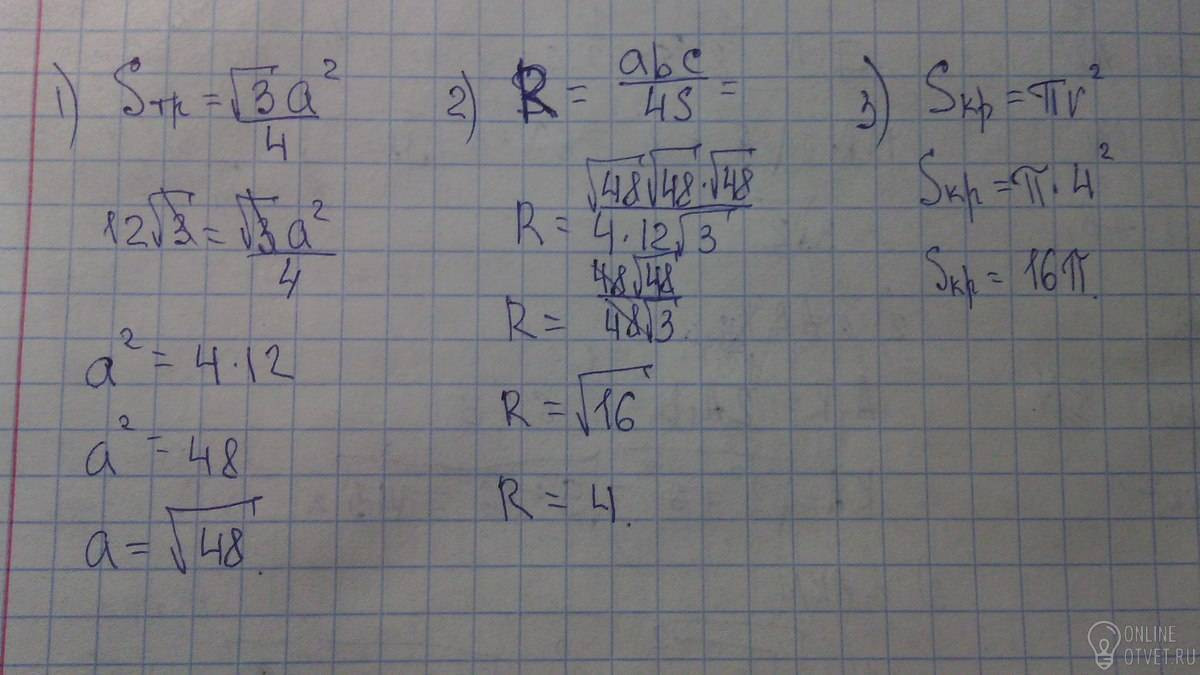 1) Sтр = √3 a² / 4
12√3 = √3 a² / 4
a² = 4·12
a² = 48
a = √48.
2) R = abc / 4S =
R = √48 √48·√48 / 4·12√3
R = 48√48 / 48√3
R = √16
R = 4.
3) Sкр = πr²
Sкр = π·4²
Sкр = 16π.
ONLINE
OTVET.RU